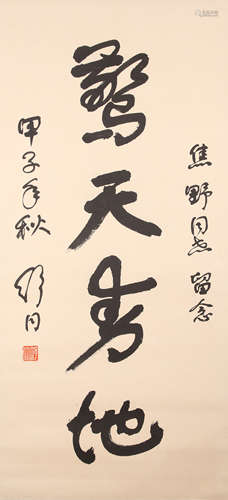 焦野同志留念
驚天動地
甲子年秋 舒同